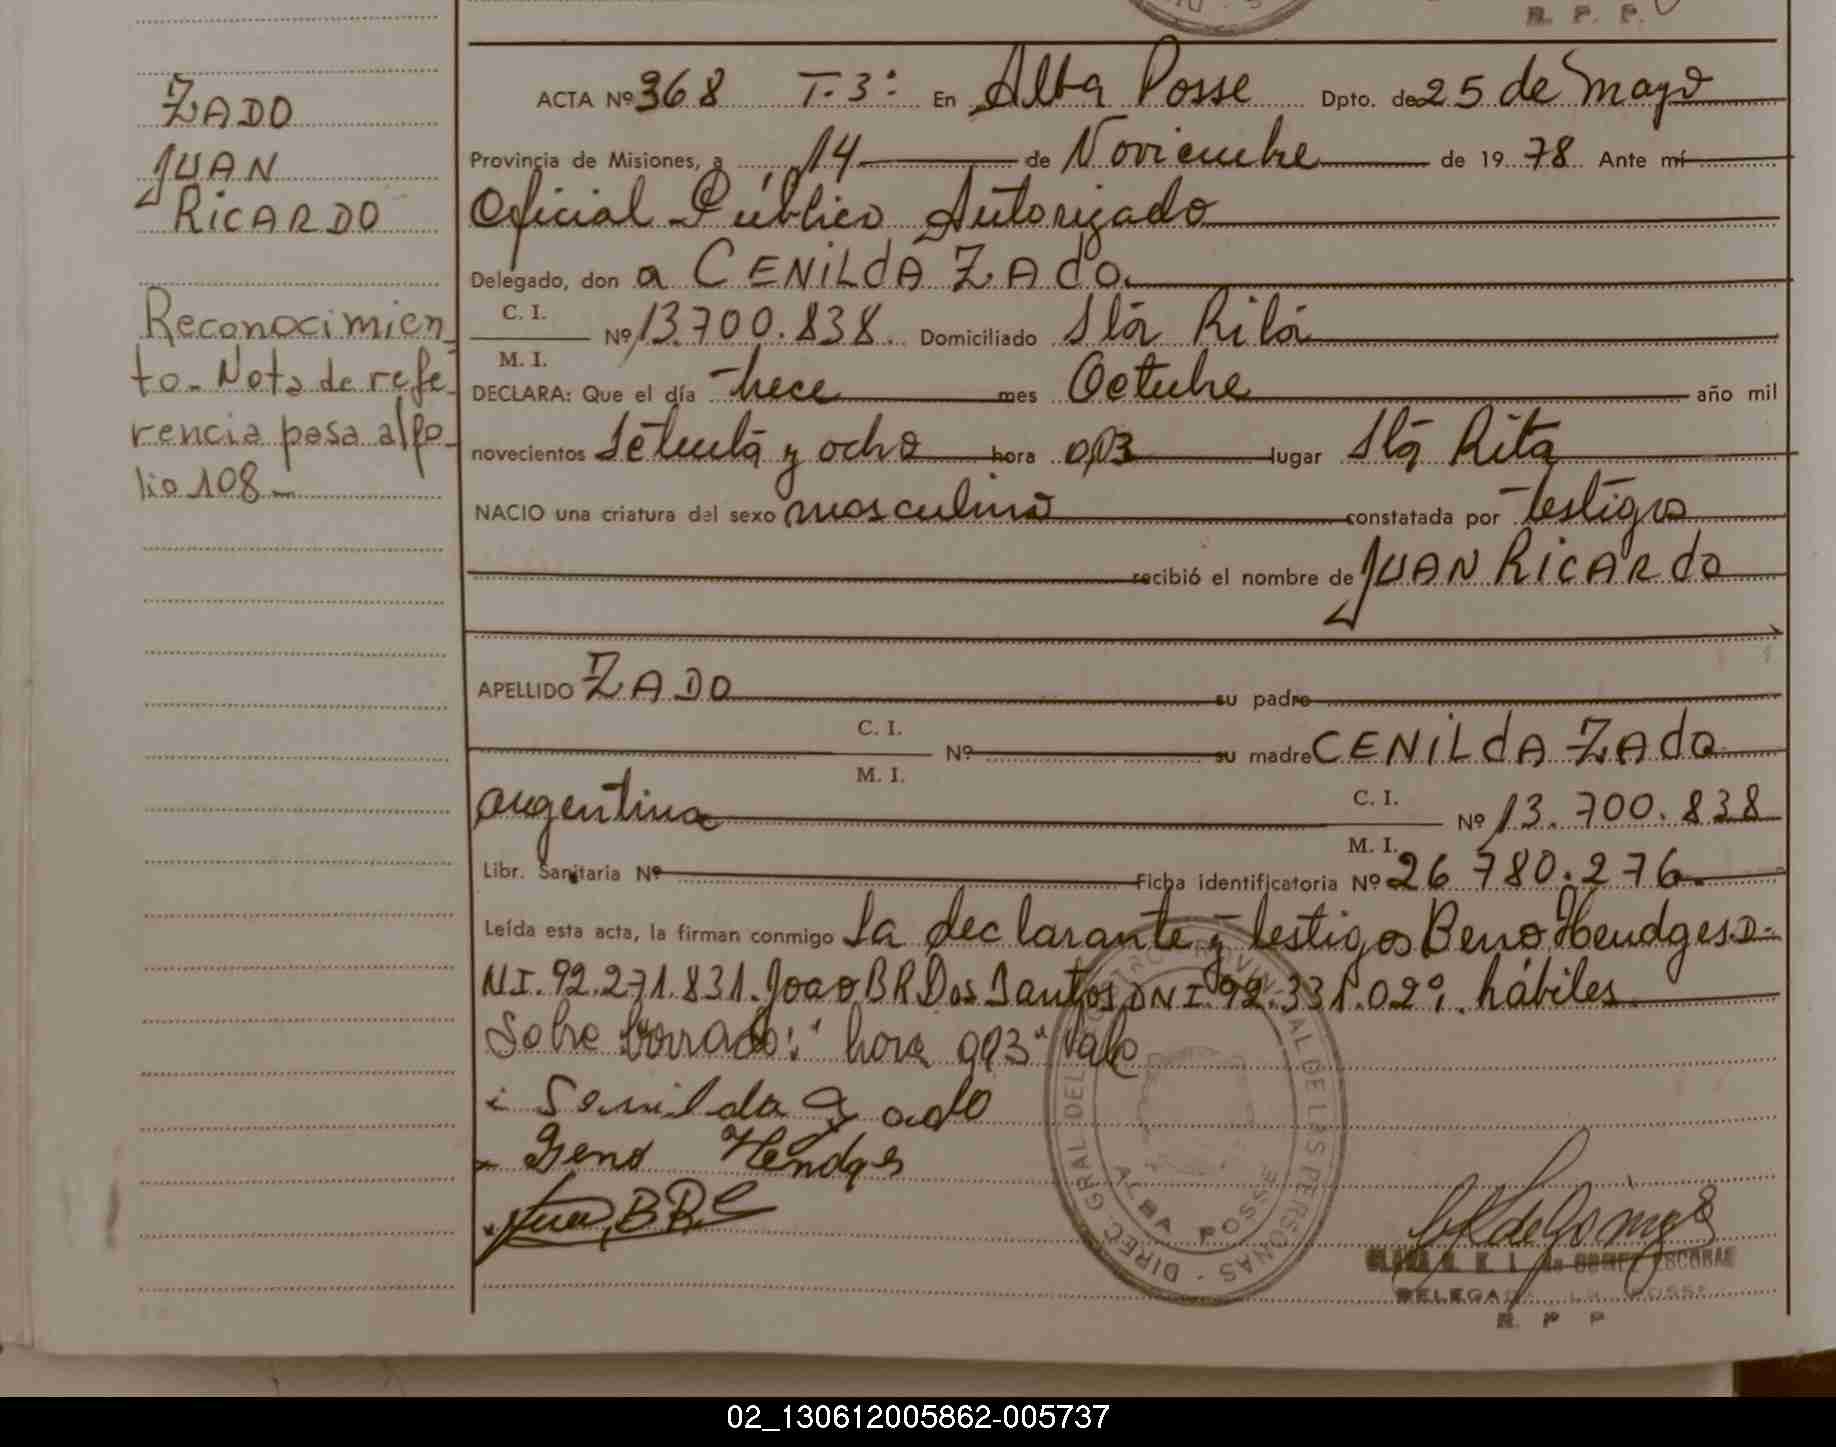 R. P. P.
ZADO
JUAN
RICARDO
Reconocimien
to. Nota de refe
rencia pasa al fo
lio 108-
ACTA Nº 368 T. 3: En Alba Posse Dpto. de 25 de Mayo
Provincia de Misiones, a 14 de Noviembre de 19 78 Ante mí
Oficial Público Autorizado
Delegado, don a CENILdA ZAdo.
C. I.
Nº 13.700.838. Domiciliado Sta Rita
M. I.
DECLARA: Que el día trece mes Octubre año mil
novecientos Setenta y ocho hora 0,03 lugar Sta Rita
NACIO una criatura del sexo masculino constatada por testigos
recibió el nombre de JUAN RICARdo
APELLIDO ZADO su padre
C. I.
Nº su madre CENILdA ZAdo
M. I.
argentina C. I. Nº 13.700.838
M. I.
Libr. Sanitaria Nº Ficha identificatoria Nº 26 780.276.
Leída esta acta, la firman conmigo la declarante y testigos Beno Hendges D.
NI. 92.271.831. Joao B R Dos Santos DNI. 92.331.029. hábiles
Sobre borrado: "hora 003" vale
Senilda Zado
Beno Hendges
DIREC. GRAL DEL REGISTRO PROVINCIAL DE LAS PERSONAS
ALBA POSSE
GOMEZ ESCOBAR
DELEGADA POSSE
R. P. P.
02_130612005862-005737